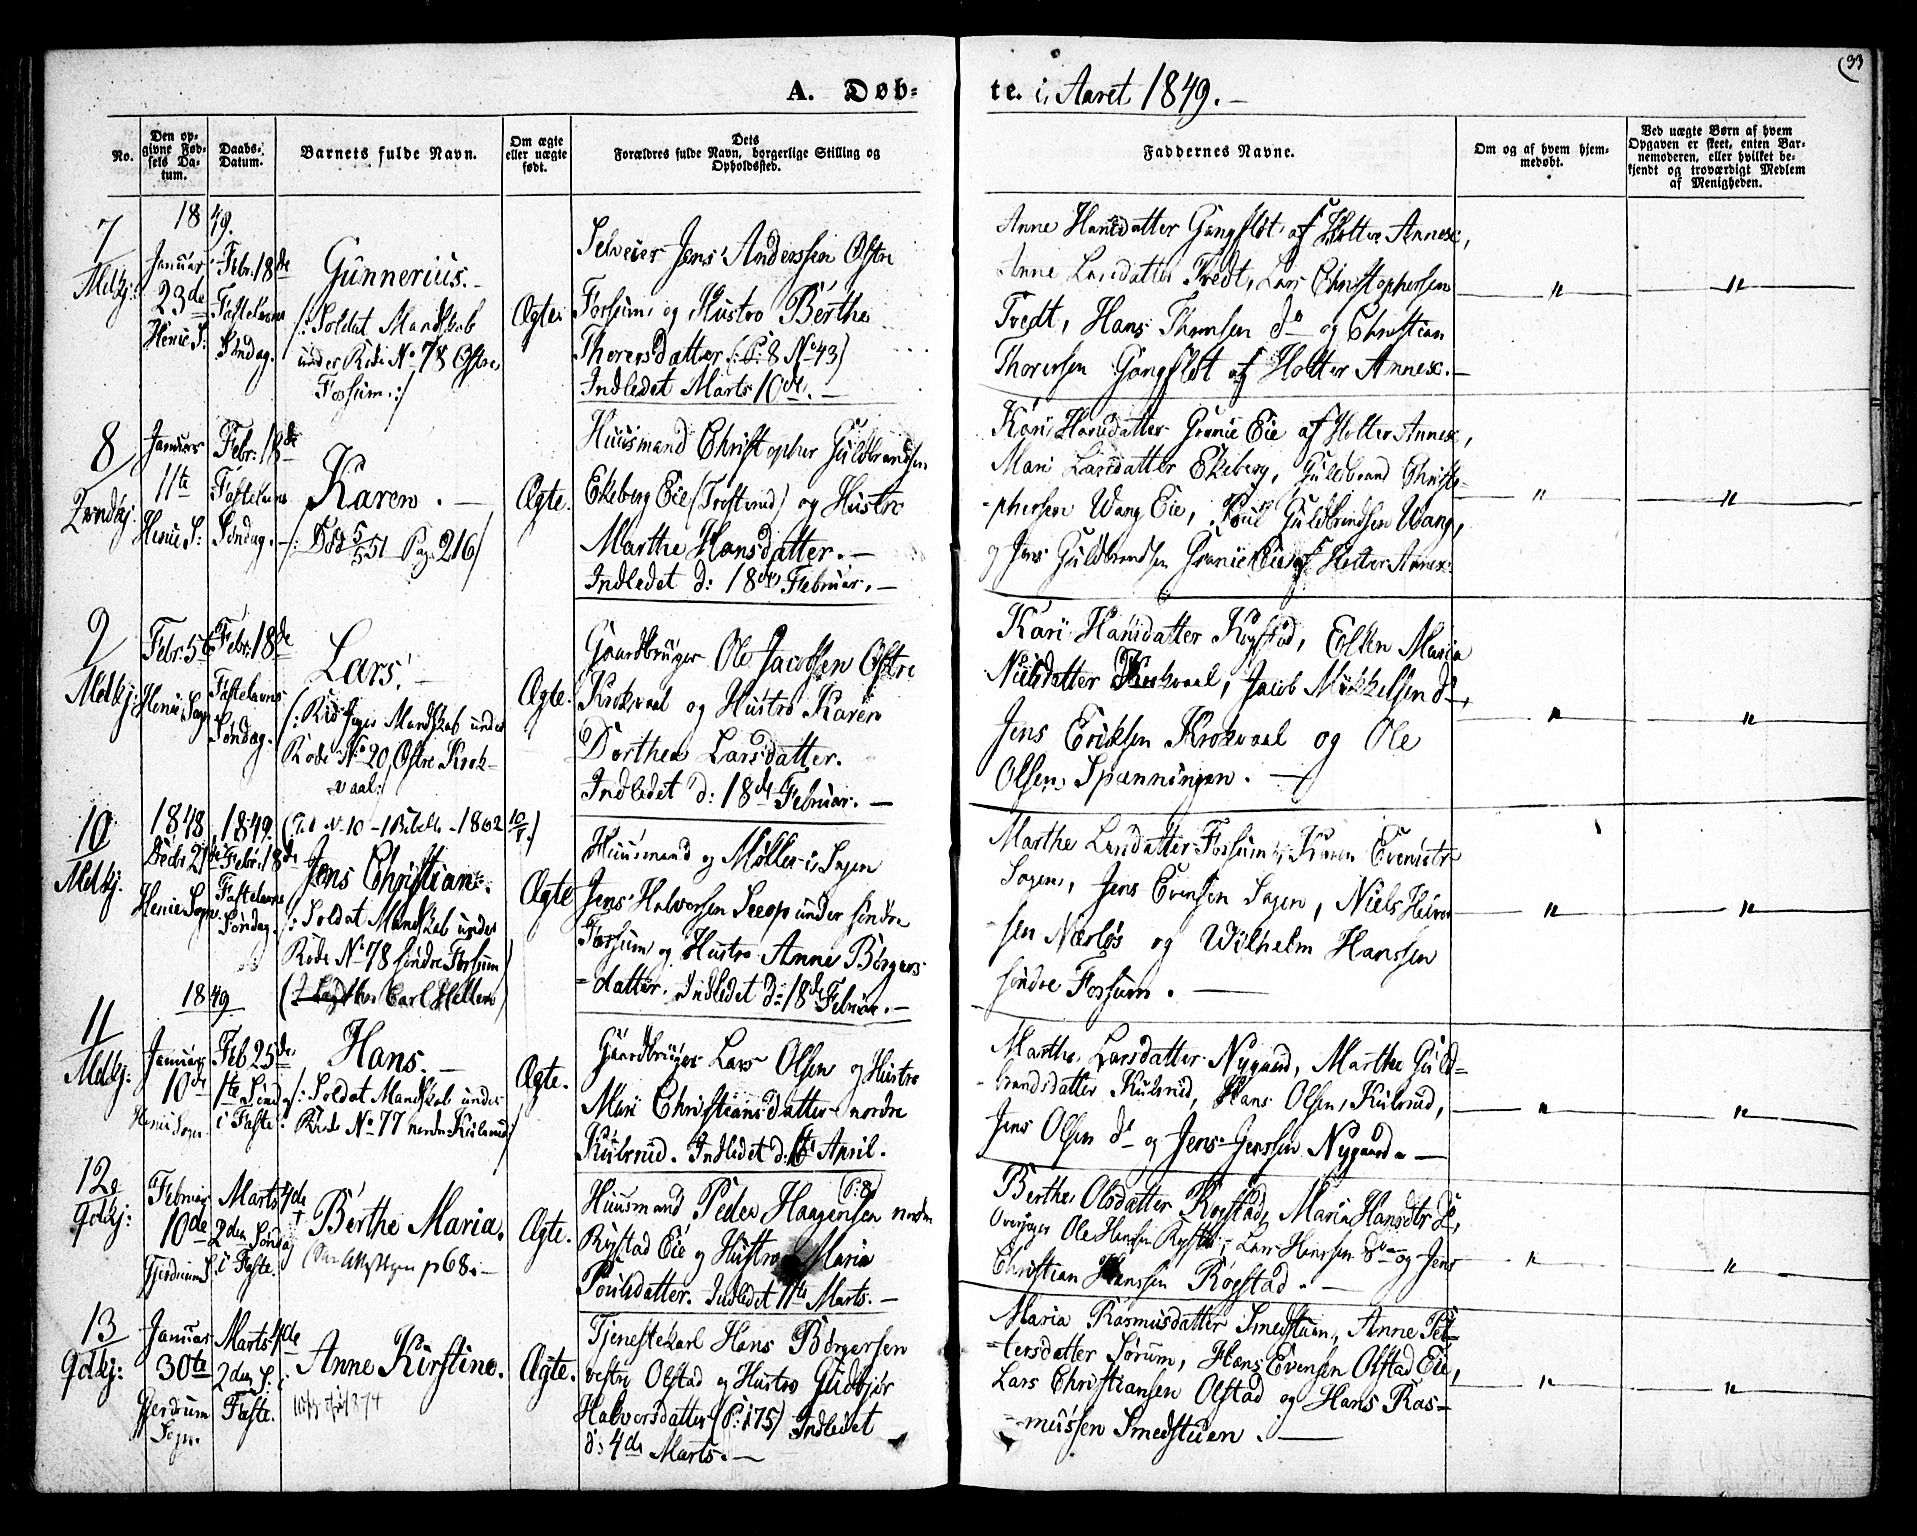 33
A. Døb-
te. i Aaret 1849.
No.
Den op-
givne Fød-
sels Da-
tum.
Daabs-
Datum.
Barnets fulde Navn.
Om ægte
eller uægte
født.
Dets
Forældres fulde Navn, borgerlige Stilling og
Opholdssted.
Faddernes Navne.
Om og af hvem hjem-
medøbt.
Ved uægte Børn af hvem
Opgaven er skeet, enten Bar-
nemoderen, eller hvilket be-
kjendt og troværdigt Medlem
af Menigheden.
1849.
7
Januar
23de
Febr. 18de
Fastelavns
Søndag.
Gunnerius.
/: Soldat Mandskab
under Rode No 78 Østre
Fossum :/
Ægte
Selveier Jens Anderssen Østre
Fossum, og Hustro Berthe
Thorersdatter (P: 8 No 43)
Indledet Marts 10de.
Anne Hansdatter Gangfløt af Holter Annex,
Anne Larsdatter Tvedt, Lars Christophersen
Tvedt, Hans Thomsen do og Christian
Thorersen Gangfløt af Holter Annex.
8
Januar
11te
Febr. 18de
Fastelavns
Søndag.
Karen.
/: Død 5/5 51 Pag. 216/
Ægte.
Huusmand Christopher Guldbrandsen
Ekeberg Eie (Trostrud) og Hustro
Marthe Hansdatter.
Indledet d: 18de Februar.
Kari Hansdatter Granie Eie af Holter Annex,
Mari Larsdatter Ekeberg, Guldbrand Christo-
-phersen Wang Eie, Poul Guldbrandsen Wang,
og Jens Guldbrandsen Granie Eie af Holter Annex
9
Febr. 5te
Febr. 18de
Fastelavns
Søndag.
Lars.
Mandskab under
Rode No 20, Østre Krok-
vaal :/
Ægte.
Gaardbruger Ole Jacobsen Østre
Krokvaal og Hustro Karen
Dorthea Larsdatter.
Indledet d: 18de Februar.
Kari Hansdatter Rogstad, Ellen Maria
Nielsdatter Krokvaal, Jacob Mikkelsen do,
Jens Eriksen Krokvaal og Ole
Olsen, Spænningen.
10
1848
Decbr 21de
1849.
Febr. 18de
Fastelavns
Søndag.
Jens Christian.
/: Soldat Mandskab under
Rode No 78 søndre Fossum/
Ægte
Huusmand og Møller i Sagen
Jens Halvorsen Seeop under søndre
Fossum og Hustro Anne Børgers-
-datter. Indledet d: 18de Februar.
Marthe Larsdatter Fossum, Karen Evensdtr
Sagen, Jens Evensen Sagen, Niels Halvor-
-sen Nærløs og Wilhelm Hanssen
søndre Fossum.
1849
11
Januar
10de
Feb 25de
1te Sønd.
i Faste
Hans.
/: Soldat Mandskab under
Rode No 77 nordre Kulsrud /
Ægte.
Gaardbruger Lars Olsen og Hustro
Mari Christiansdatter nordre
Kulsrud. Indledet d: April.
Marthe Larsdatter Nygaard, Marthe Guld-
-brandsdatter Kulsrud, Hans Olsen, Kulsrud,
Jens Olsen do og Jens Jenssen Nygaard.
12
Februar
10de
Marts 4de
2den Søndag
i Faste.
Berthe Maria.
p 68.
Ægte.
Huusmand Peder Haagensen nordre
Rogstad Eie og Hustro Maria
Poulsdatter. Indledet 11te Marts.
Berthe Olsdatter Rogstad, Maria Hansdtr do,
Ole Hansen Rogstad, Lars Hanssen do og Jens
Christian Hanssen Rogstad.
13
Januar
30te
Gjerdrum
Sogn.
Marts 4de
2den S. i
Faste.
Anne Kirstine.
1874
Ægte.
Tjenestekarl Hans Børgersen
vestre Olstad og Hustro Gudbjør
Halvorsdatter (P: 175) Indledet
d: 4de Marts.
Maria Rasmusdatter Smedstuen, Anne Pet-
-tersdatter Sørum, Hans Evensen Olstad Eie,
Lars Christiansen Olstad og Hans Ras-
-mussen Smedstuen.